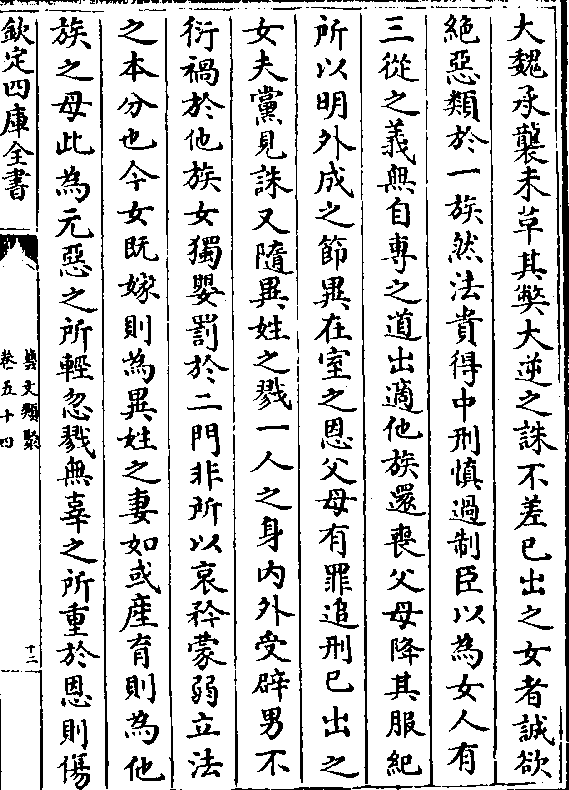 大魏承襲未革其弊大逆之誅不差已出之女者誠欲
絕惡類於一族然法貴得中刑慎過制臣以為女人有
三從之義無自專之道出適他族還喪父母降其服紀
所以明外成之節異在室之恩父母有罪追刑已出之
女夫黨見誅又隨異姓之戮一人之身內外受辟男不
衍禍於他族女獨嬰罰於二門非所以哀矜蒙弱立法
之本分也今女既嫁則為異姓之妻如或產育則為他
族之母此為元惡之所輕忽戮無辜之所重於恩則傷
欽定四庫全書
藝文類聚
卷五十四
十二